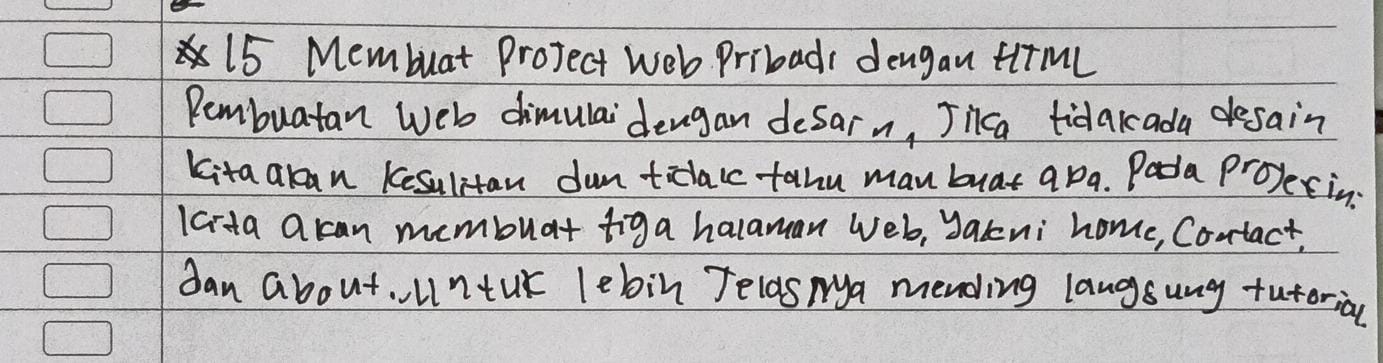 15 Membuat Project Web Pribadi dengan HTML
Pembuatan Web dimulai dengan desain, Jika tidak ada desain
kita akan kesulitan dan tidak tahu mau buat apa. Pada project ini
kita akan membuat tiga halaman Web, yakni home, Contact,
dan about. Untuk lebih Jelasnya mending langsung tutorial